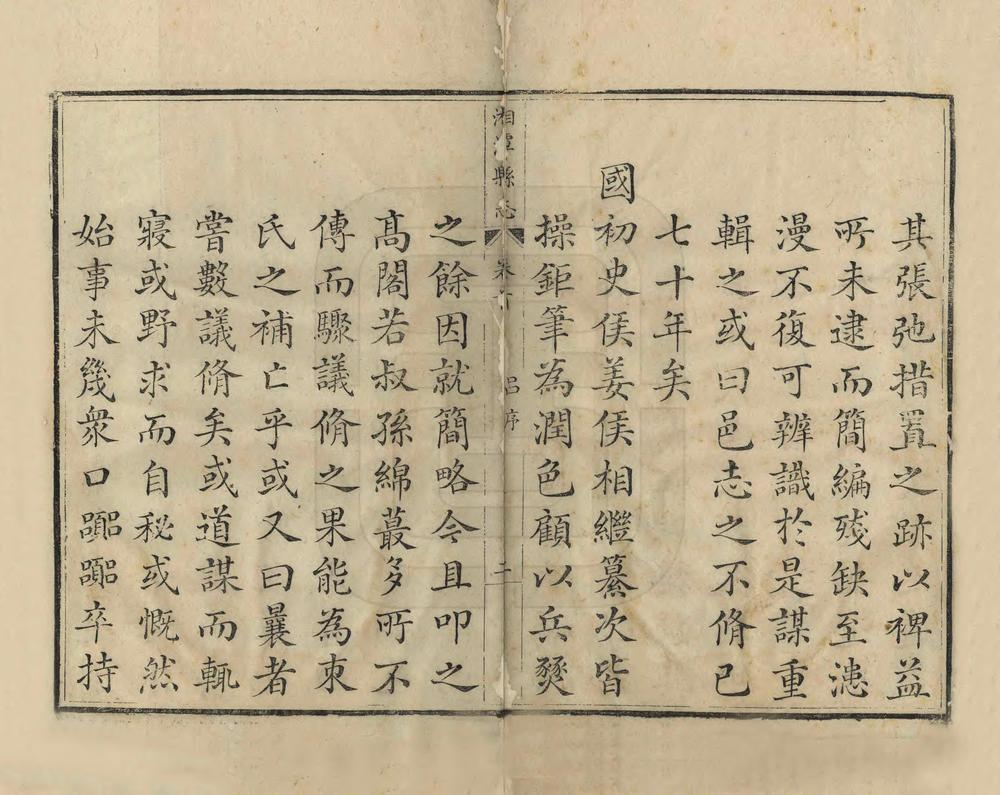 其張弛措置之跡以裨益
所未逮而簡編殘缺至漶
漫不復可辨識於是謀重
輯之或曰邑志之不脩已
七十年矣
國初史侯姜侯相繼纂次皆
操鉅筆為潤色顧以兵燹
湘潭縣志
呂序
二
之餘因就簡略今且叩之
髙閣若叔孫綿蕞多所不
傳而驟議脩之果能為束
氏之補亡乎或又曰曩者
嘗數議脩矣或道謀而輒
寢或野求而自秘或慨然
始事未幾衆口嘂嘂卒持